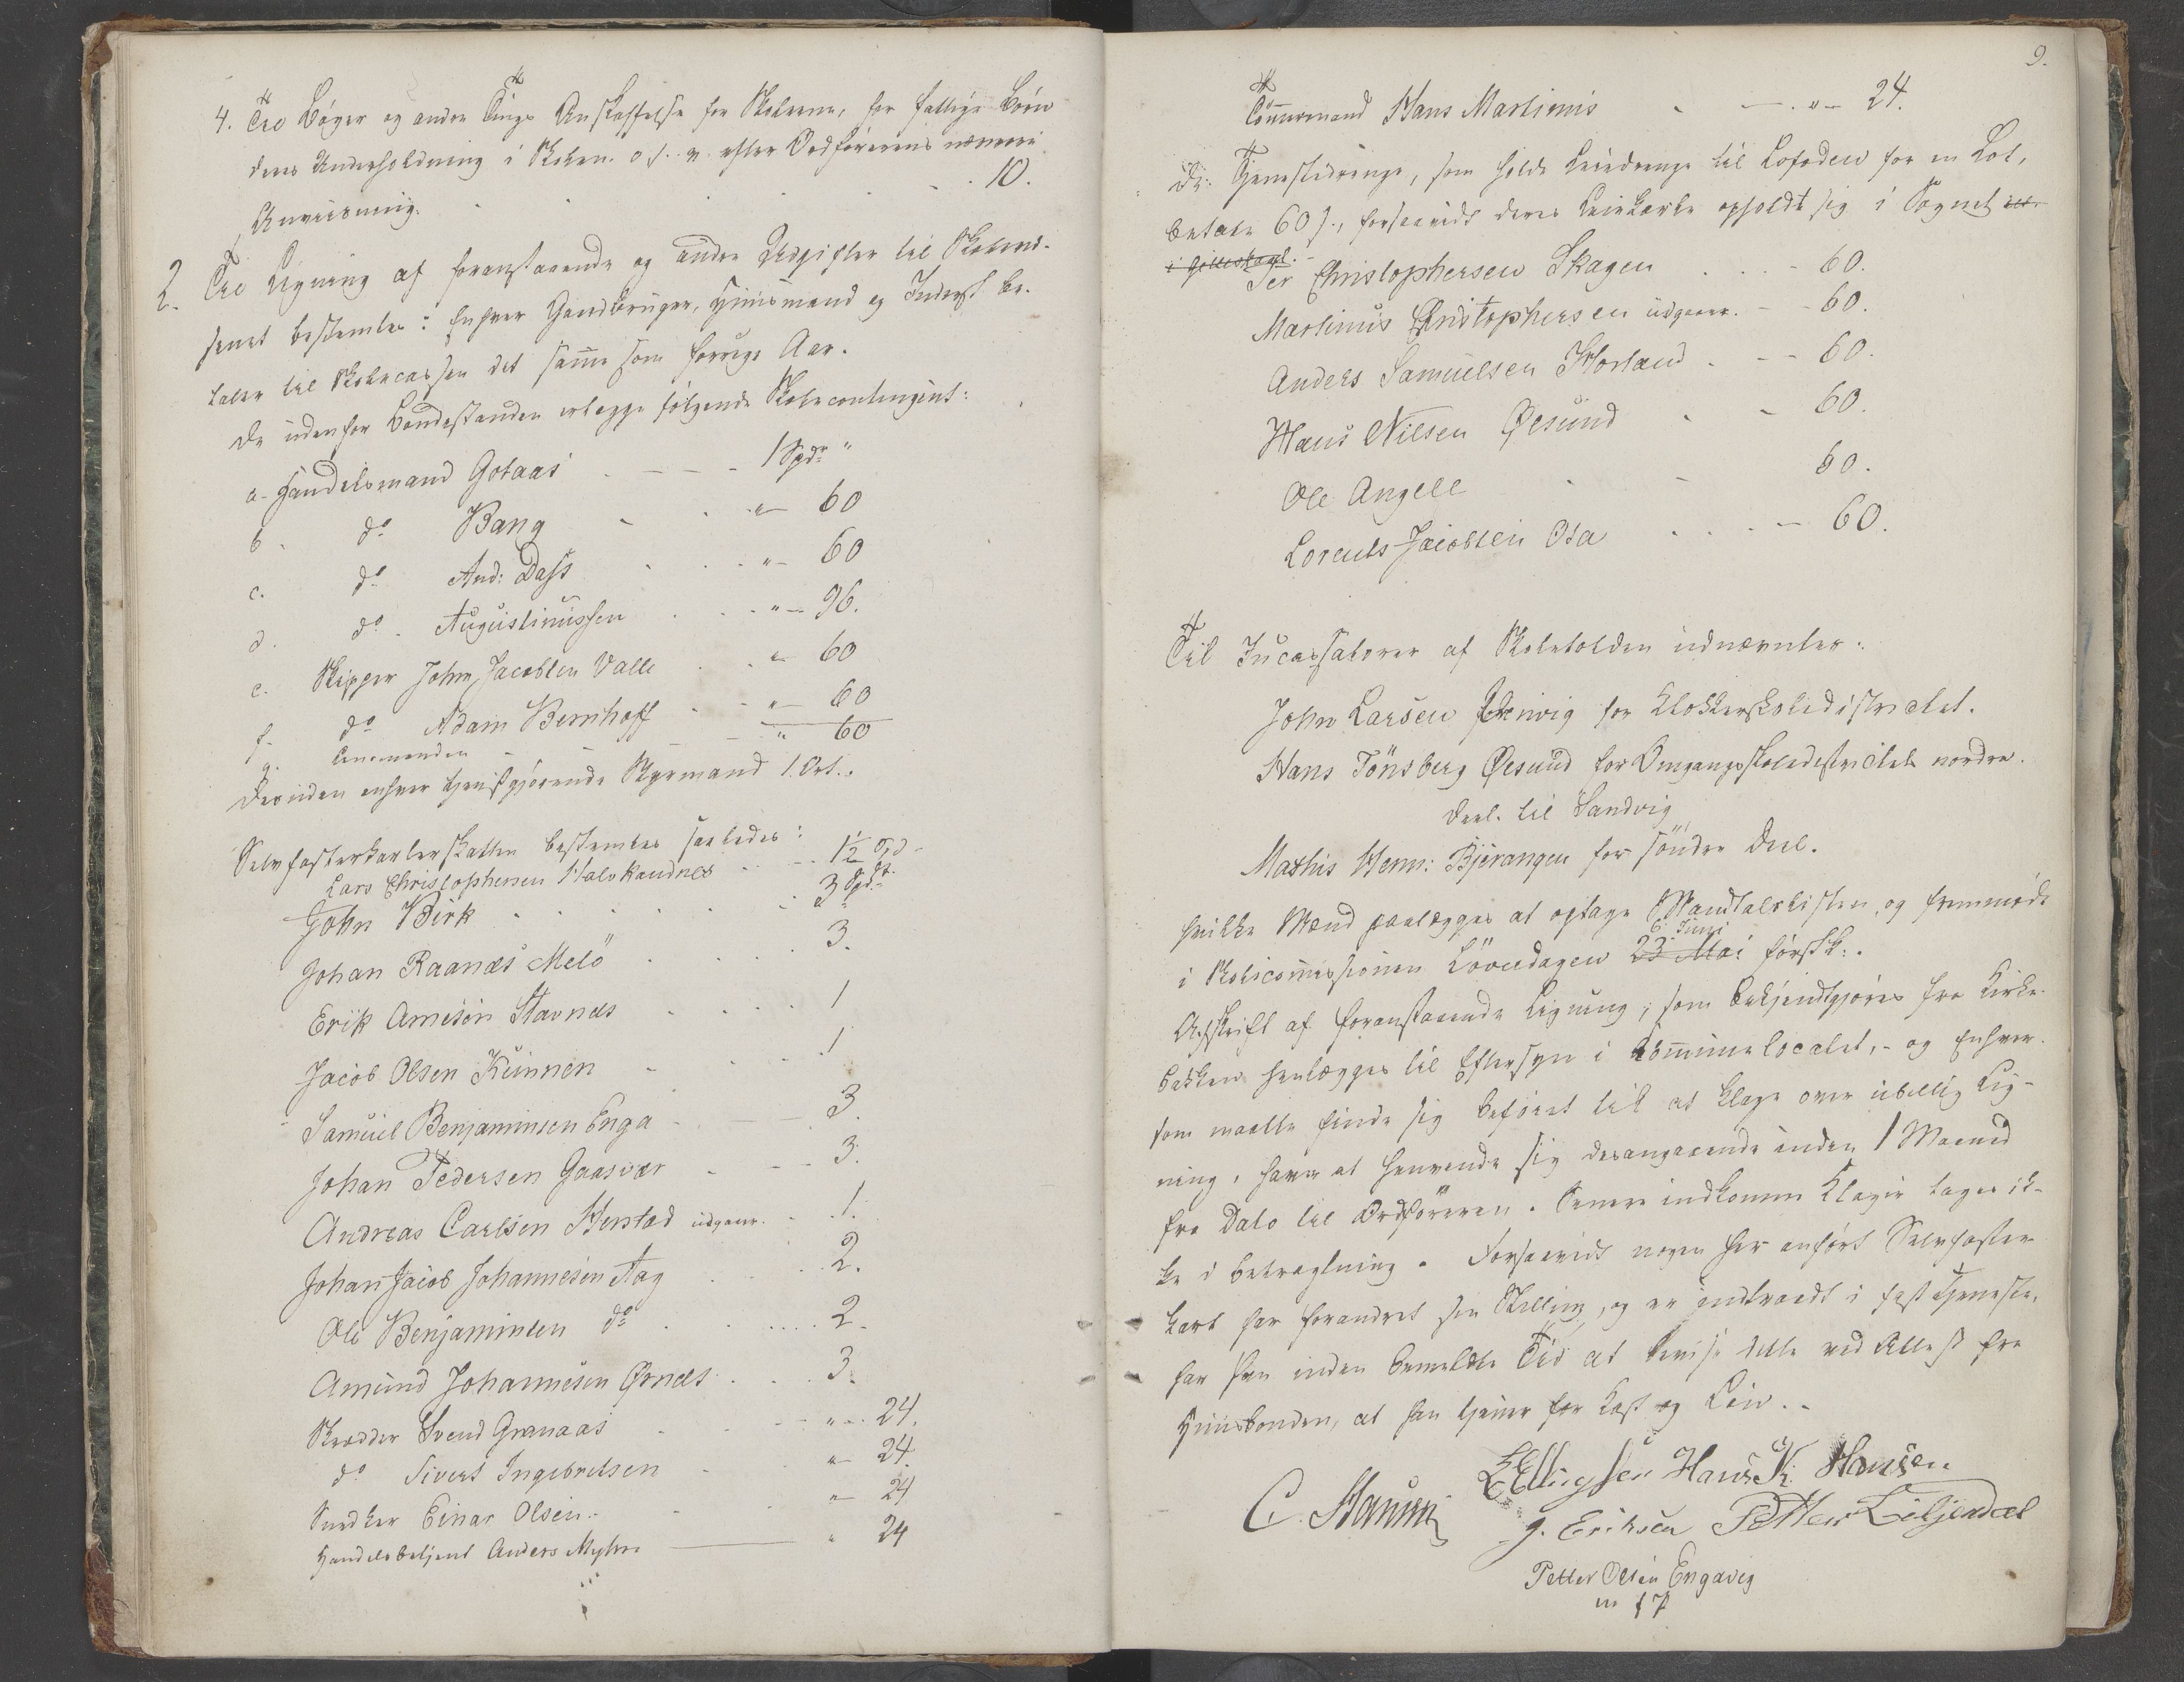 4. Til Bøger og andre Tings Anskaffelse for Skolerne, for fattige Børn
deres Underholdning i Skolen. o. s. v. efter Ordførerens nærmere
Anviisning. 10.
2. Til Ligning af foranstaaende og andre Udgifter til Skolevæ-
senet bestemtes: Enhver Gaardbruger, Huusmand og Inderst be-
taler til Skolecassen det samme som forrige Aar.
De udenfor Bondestanden erlægge følgende Skolecontingent:
a. Handelsmand Gotaas - - - 1 Spdr "
b. do Bang " - 60
c. do And: Dass " - 60
d. do Augustinussen " - 96.
e. Skipper John Jacobsen Valle " 60
f. do Adam Bernhoff " - 60
g. " 60
Desuden enhver tjenstgjørende Styrmand 1 Ort.
Selvfosterkarlerskatten bestemtes saaledes:
Lars Christophersen Halskandnes 1½ Spd
John Birk 3 Spdr
Johan Raanæs Melö 3.
Erik Arnesön Stavnæs 1
Jacob Olsen Kunnen 1
Samuel Benjaminsen Enga 3.
Johan Pedersen Gaasvær 3.
Andreas Carlsen Herstad udgaar. 1.
Johan Jacob Johannesen Aag 2.
Ole Benjaminsen do 2.
Amund Johannesen Ørnæs 3.
Skrædder Svend Granaas " 24.
do Sivert Ingebretsen " 24.
Snedker Einar Olsen " 24
Handelsbetjent Anders Myhre " 24
9.
Tømmermand Hans Martinus " 24.
De Tjenestedrenge, som holde Leiedrenge til Lofoden for en Lot,
betale 60 s., forsaavidt deres Leiekarle opholdt sig i Sognet
Per Christophersen Skagen 60.
Martinus Christophersen udgaar. 60.
Anders Samuelsen Storland 60.
Hans Nilsen Øesund 60.
Ole Angell 60.
Lorents Jacobsen Osa 60.
Til Incassatorer af Skoletolden udnævntes:
John Larsen for Klokkerskoledistrictet.
Hans Tönsberg Øesund for Omgangsskoledistrictets nordre
Deel til Sandvig
Mathis Henn: Bjerangen for söndre Deel.
hvilke Mænd paalægges at optage Mandtalslisten, og fremmøde
6 Juni
i Skolecommissionen Löverdagen 23 Mai förstk:.
Afskrift af foranstaaende Ligning, som bekjendtgjøres fra Kirke-
bakken henlægges til Eftersyn i Communelocalet, - og Enhver
som maatte finde sig beføiet til at klage over ubillig Lig-
ning, haver at henvende sig desangaaende inden 1 Maaned
fra Dato til Ordføreren. Senere indkomne Klager tages ik-
ke i betragtning. Forsaavidt nogen her anført Selvfoster-
karl har forandret sin Stilling, og er indtraadt i fast Tjeneste,
har han inden bemeldte Tid at bevise dette ved Attest fra
Huusbonden, at han tjener for Kost og Løn.
E Ellingsen Hans K. Hansen
C. Hansen J. Eriksen Petter Liljendal
Petter Olsen Engavig
m f P